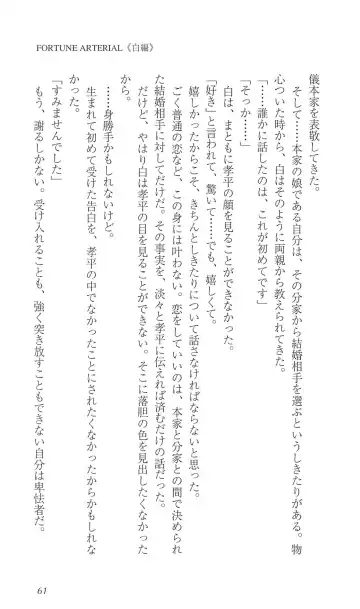 FORTUNE ARTERIAL《白編》
儀本家を表敬してきた。
そして……本家の娘である自分は、その分家から結婚相手を選ぶというしきたりがある。物
心ついた時から、白はそのように両親から教えられてきた。
「……誰かに話したのは、これが初めてです」
「そっか……」
白は、まともに孝平の顔を見ることができなかった。
「好き」と言われて、驚いて……でも、嬉しくて。
嬉しかったからこそ、きちんとしきたりについて話さなければならないと思った。
ごく普通の恋など、この身には叶わない。恋をしていいのは、本家と分家との間で決められ
た結婚相手に対してだけだ。その事実を、淡々と孝平に伝えれば済むだけの話だった。
だけど、やはり白は孝平の目を見ることができない。そこに落胆の色を見出したくなかった
から。
……身勝手かもしれないけど。
生まれて初めて受けた告白を、孝平の中でなかったことにされたくなかったからかもしれな
かった。
「すみませんでした」
もう、謝るしかない。受け入れることも、強く突き放すこともできない自分は卑怯者だ。
61